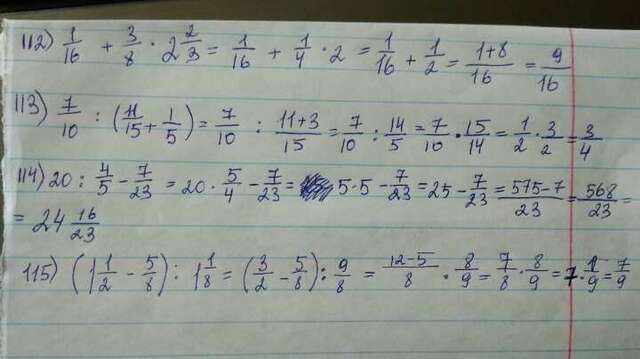 112) 1/16 + 3/8 · 2 2/3 = 1/16 + 1/4 · 2 = 1/16 + 1/2 = (1+8)/16 = 9/16
113) 7/10 : (11/15 + 1/5) = 7/10 : (11+3)/15 = 7/10 : 14/5 = 7/10 · 15/14 = 1/2 · 3/2 = 3/4
114) 20 : 4/5 - 7/23 = 20 · 5/4 - 7/23 = 5·5 - 7/23 = 25 - 7/23 = (575-7)/23 = 568/23 =
= 24 16/23
115) (1 1/2 - 5/8) : 1 1/8 = (3/2 - 5/8) : 9/8 = (12-5)/8 · 8/9 = 7/8 · 8/9 = 7 · 1/9 = 7/9